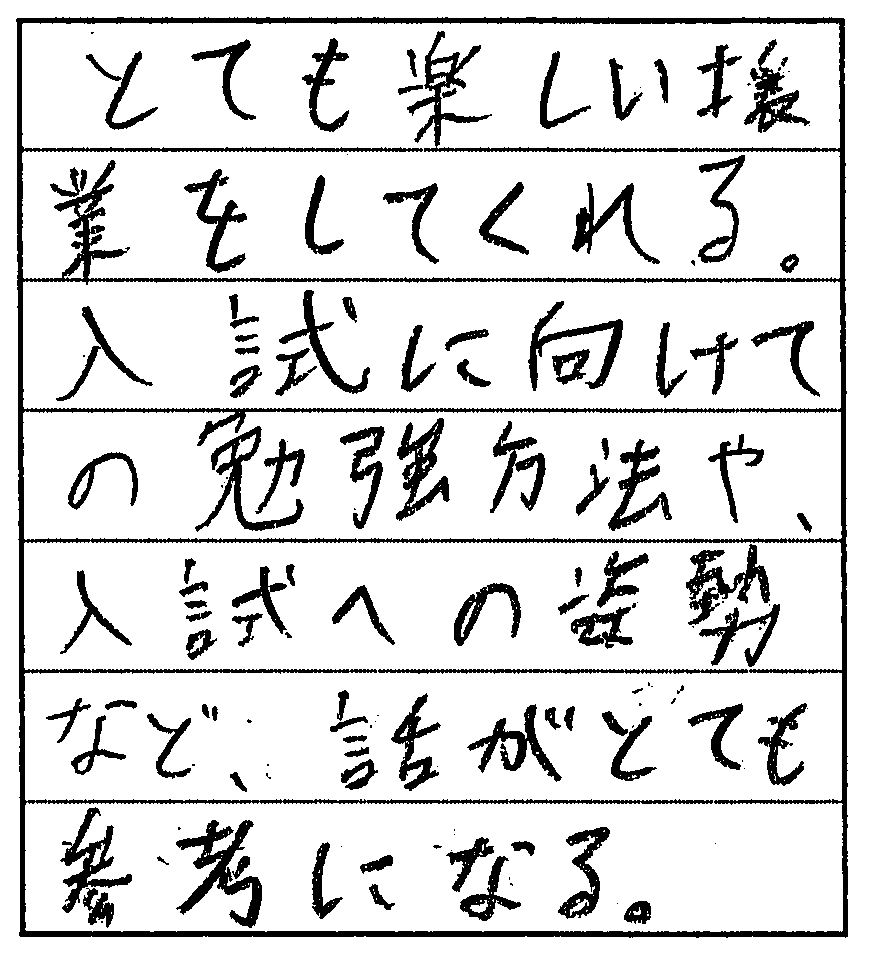 とても楽しい授
業をしてくれる。
入試に向けて
の勉強方法や、
入試への姿勢
など、話がとても
参考になる。